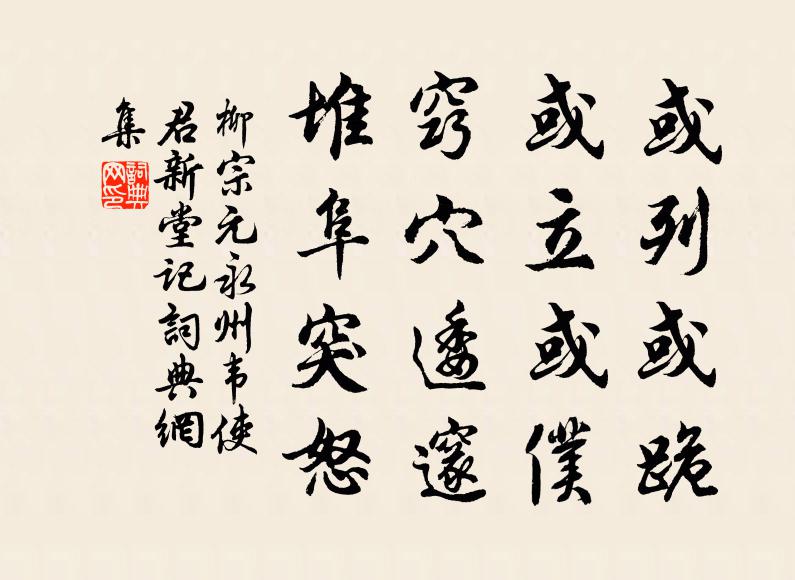 或列或跪
或立或僕
竅穴逶邃
堆阜突怒
柳宗元永州韦使
君新堂记詞典網
集
詞典
网印